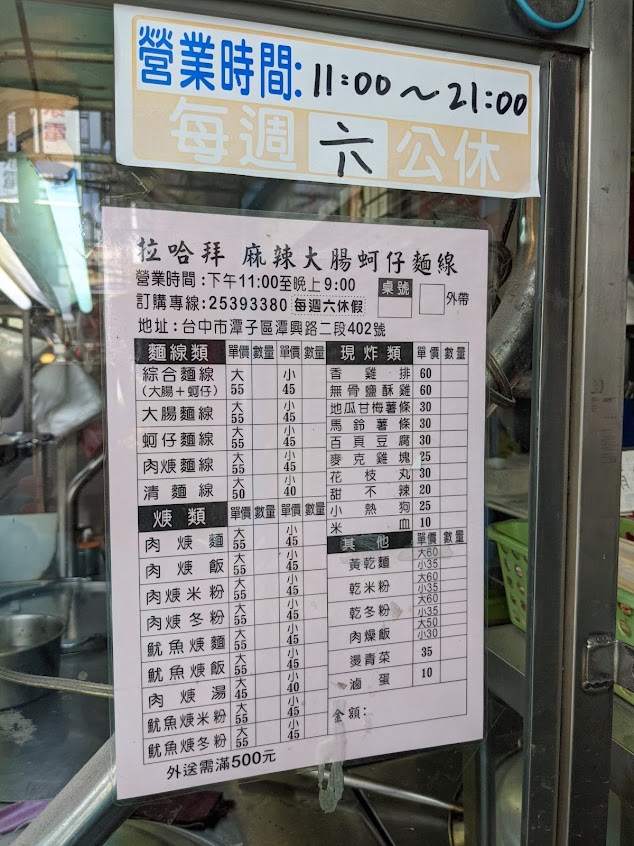 營業時間:11:00～21:00
每週六公休
拉哈拜 麻辣大腸蚵仔麵線
營業時間:下午11:00至晚上9:00
訂購專線:25393380 每週六休假
桌號 外帶
地址:台中市潭子區潭興路二段402號
麵線類 單價 數量 單價 數量
綜合麵線(大腸+蚵仔) 大55 小45
大腸麵線 大55 小45
蚵仔麵線 大55 小45
肉焿麵線 大55 小45
清麵線 大50 小40
焿類 單價 數量 單價 數量
肉焿麵 大55 小45
肉焿飯 大55 小45
肉焿米粉 大55 小45
肉焿冬粉 大55 小45
魷魚焿麵 大55 小45
魷魚焿飯 大55 小45
肉焿湯 大45 小40
魷魚焿米粉 大55 小45
魷魚焿冬粉 大55 小45
外送需滿500元
現炸類 單價 數量
香雞排 60
無骨鹽酥雞 60
地瓜甘梅薯條 30
馬鈴薯條 30
百頁豆腐 30
麥克雞塊 25
花枝丸 30
甜不辣 20
小熱狗 25
米血 10
其他 單價 數量
黃乾麵 大60 小35
乾米粉 大60 小35
乾冬粉 大60 小35
肉燥飯 大50 小30
燙青菜 35
滷蛋 10
金額: